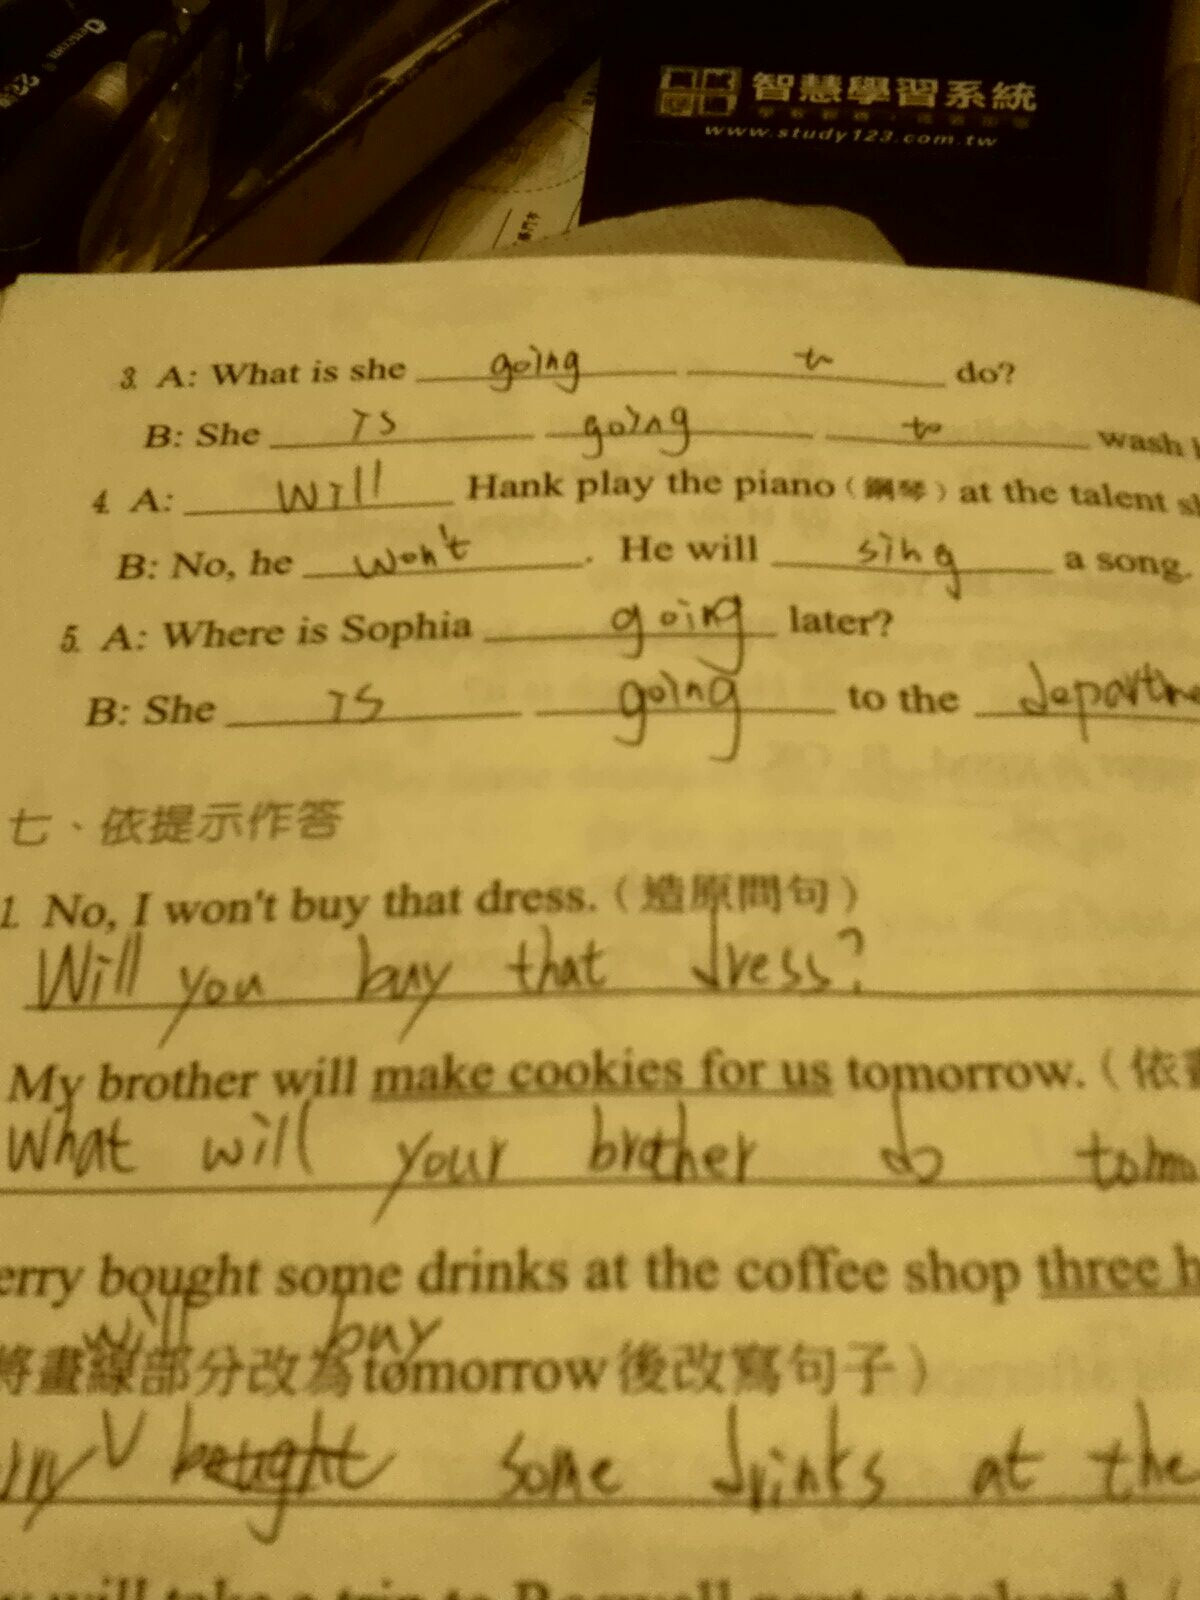 智慧學習系統
www.study123.com.tw
3. A: What is she going to do?
B: She is going to wash
4. A: Will Hank play the piano（鋼琴）at the talent
B: No, he won't. He will sing a song.
5. A: Where is Sophia going later?
B: She is going to the departme
七、依提示作答
1. No, I won't buy that dress.（造原問句）
Will you buy that dress?
My brother will make cookies for us tomorrow.（依
What will your brother do tomo
erry bought some drinks at the coffee shop three h
will buy
將畫線部分改為tomorrow後改寫句子）
bought some drinks at the
will take a trip to Roswell next weekend.（